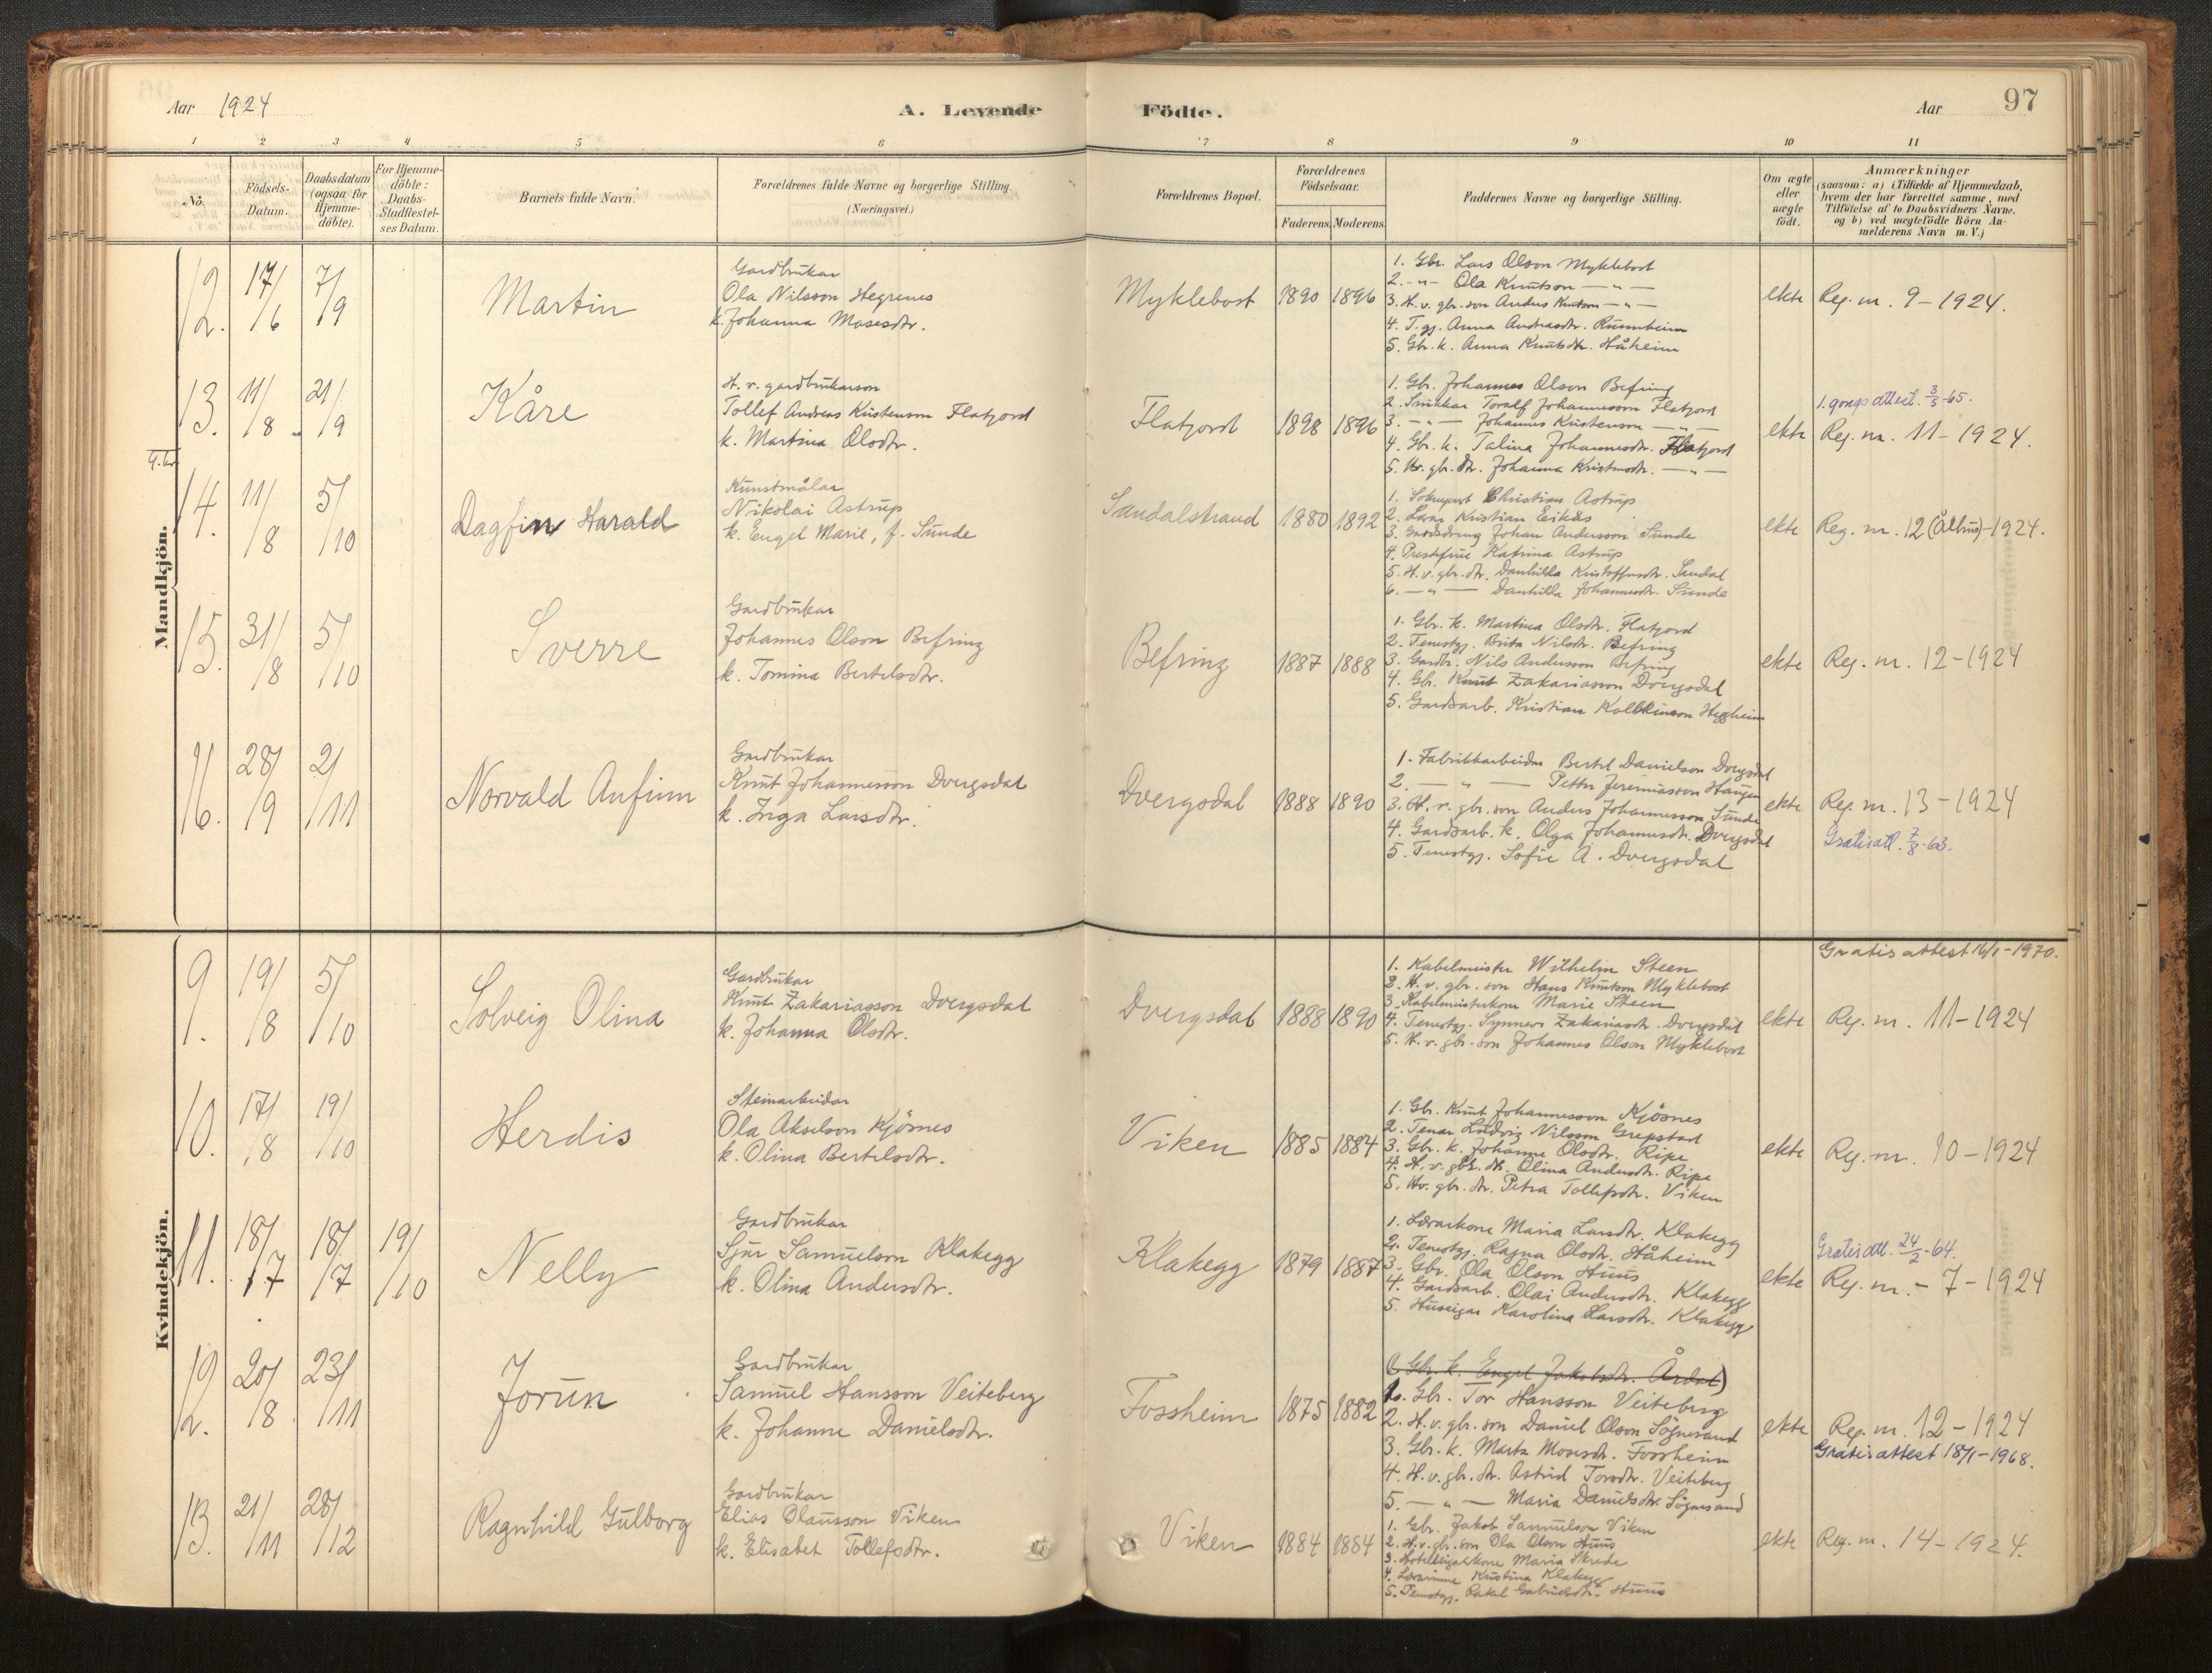 Aar 1924
A. Levende Födte.
Aar 97
1 2 3 4 5 6 7 8 9 10 11
No.
Födsels-Datum.
Daabsdatum (ogsaa for Hjemme-döbte).
For Hjemme-döbte: Daabs-Stadfæstel-ses Datum.
Barnets fulde Navn.
Forældrenes fulde Navne og borgerlige Stilling. (Næringsvei.)
Forældrenes Bopæl.
Forældrenes Födselsaar.
Faderens. Moderens.
Faddernes Navne og borgerlige Stilling.
Om ægte eller uægte födt.
Anmærkninger
(saasom: a) i Tilfælde af Hjemmedaab,
hvem der har forrettet samme, med
Tilföielse af to Daabsvidners Navne,
og b) ved uægtefödte Börn An-
melderens Navn m. V.)
Mandkjön.
12. 17/6 7/9
Martin
Gardbrukar
Ola Nilsson Hegrenes
k. Johanna Mosesdtr.
Myklebost 1890 1896
1. Gbr. Lars Olson Myklebost
2. -"- Ola Knutson -"-
3. H. v. gbr. son Anders Knutson -"-
4. T. gj. Anna Andreasdtr.
5. Gbr. k. Anna Knutsdtr. Håheim
ekte Reg. nr. 9-1924.
13. 11/8 21/9
Kåre
H. v. gardbrukarson
Tollef Andreas Kristenson Flatjord
k. Martina Olsdtr.
Flatjord 1898 1896
1. Gbr. Johannes Olson Befring
2. Snikkar Toralf Johannesson Flatjord
3. -"- Johannes Kristenson -"-
4. Gbr. k. Talina Johannesdtr. Flatjord
5. Hv. gbr. dtr. Johanna Kristensdtr. -"-
ekte
1. gongs attest. 3/3-65.
Reg. nr. 11-1924.
14. 11/8 5/10
Dagfinn Harald
Kunstmålar
Nikolai Astrup
k. Engel Marie, f. Sunde
Sandalstrand 1880 1892
1. Sokneprest Christian Astrup
2. Lærar Kristian Eikås
3. Gardsdreng Johan Andersson Sunde
4. Prestefrue Katrina Astrup
5. H. v. gbr. dtr. Danhilda Kristoffersdtr. Sandal
6. -"- Danhilda Johannesdtr. Sunde
ekte Reg. nr. 12 (Ålhus)-1924.
15. 31/8 5/10
Sverre
Gardbrukar
Johannes Olson Befring
k. Tomina Bertelsdtr.
Befring 1887 1888
1. Gbr. k. Martina Olsdtr. Flatjord
2. Tenestgj. Brita Nilsdtr. Befring
3. Gardbr. Nils Andersson Befring
4. Gbr. Knut Zakariasson Dvergsdal
5. Gardsarb. Kristian Kolbeinson Hegheim
ekte Reg. nr. 12-1924
16. 28/9 2/11
Norvald Anfinn
Gardbrukar
Knut Johannesson Dvergsdal
k. Inga Larsdtr.
Dvergsdal 1888 1890
1. Fabrikkarbeidar Bertel Danielson Dvergsdal
2. -"- Petter Jeremiasson Haugen
3. H. v. gbr. son Anders Johannesson Sunde
4. Gardsarb. k. Olga Johannesdtr. Dvergsdal
5. Tenestgj. Sofie A. Dvergsdal
ekte Reg. nr. 13-1924
Gratis att. 7/8-63.
Kvindekjön.
9. 19/8 5/10
Solveig Olina
Gardbrukar
Knut Zakariasson Dvergsdal
k. Johanna Olsdtr.
Dvergsdal 1888 1890
1. Kabelmeister Wilhelm Steen
2. H. v. gbr. son Hans Knutson Myklebost
3. Kabelmeisterkone Marie Steen
4. Tenestgj. Synneva Zakariasdtr. Dvergsdal
5. H. v. gbr. son Johannes Olson Myklebost
ekte
Gratis attest 16/1-1970.
Reg. nr. 11-1924
10. 17/8 19/10
Herdis
Steinarbeidar
Ola Akselson Kjösnes
k. Olina Bertelsdtr.
Viken 1885 1884
1. Gbr. Knut Johannesson Kjösnes
2. Tenar Ludvig Nilsson Grepstad
3. Gbr. k. Johanne Olsdtr. Ripe
4. H. v. gbr. dtr. Olina Andersdtr. Ripe
5. Hv. gbr. dtr. Petra Tollefsdtr. Viken
ekte Reg. nr. 10-1924
11. 18/7 18/7 19/10
Nelly
Gardbrukar
Sjur Samuelson Klakegg
k. Olina Andersdtr.
Klakegg 1879 1887
1. Lærarkone Maria Larsdtr. Klakegg
2. Tenestgj. Ragna Olsdtr. Håheim
3. Gbr. Ola Olson Huus
4. Gardsarb. Olai Andersdtr. Klakegg
5. Huseigar Karolina Larsdtr. Klakegg
ekte
Gratis att. 24/2-64.
Reg. nr. - 7-1924
12. 20/8 23/11
Jorun
Gardbrukar
Samuel Hansson Veiteberg
k. Johanne Danielsdtr.
Fossheim 1875 1882
(Gbr. k. Engel Jakobsdtr. Årdal)
1. Gbr. Tor Hansson Veiteberg
2. H. v. gbr. son Daniel Olson Sögnesand
3. Gbr. k. Marta Mosesdtr. Fossheim
4. H. v. gbr. dtr. Astrid Torsdtr. Veiteberg
5. -"- Maria Danielsdtr. Sögnesand
ekte Reg. nr. 12-1924
Gratis attest 18/1-1968.
13. 21/11 28/12
Ragnhild Gulborg
Gardbrukar
Elias Olausson Viken
k. Elisabet Tollefsdtr.
Viken 1884 1884
1. Gbr. Jakob Samuelson Viken
2. H. v. gbr. son Ola Olson Huus
3. Hotelleigarkone Maria Skrede
4. Lærarinne Kristina Klakegg
5. Tenestgj. Rakel Gabrielsdtr. Huus
ekte Reg. nr. 14-1924.